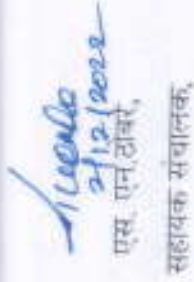 2/12/2022
एस. एन. टोबरे,
सहायक संचालक,